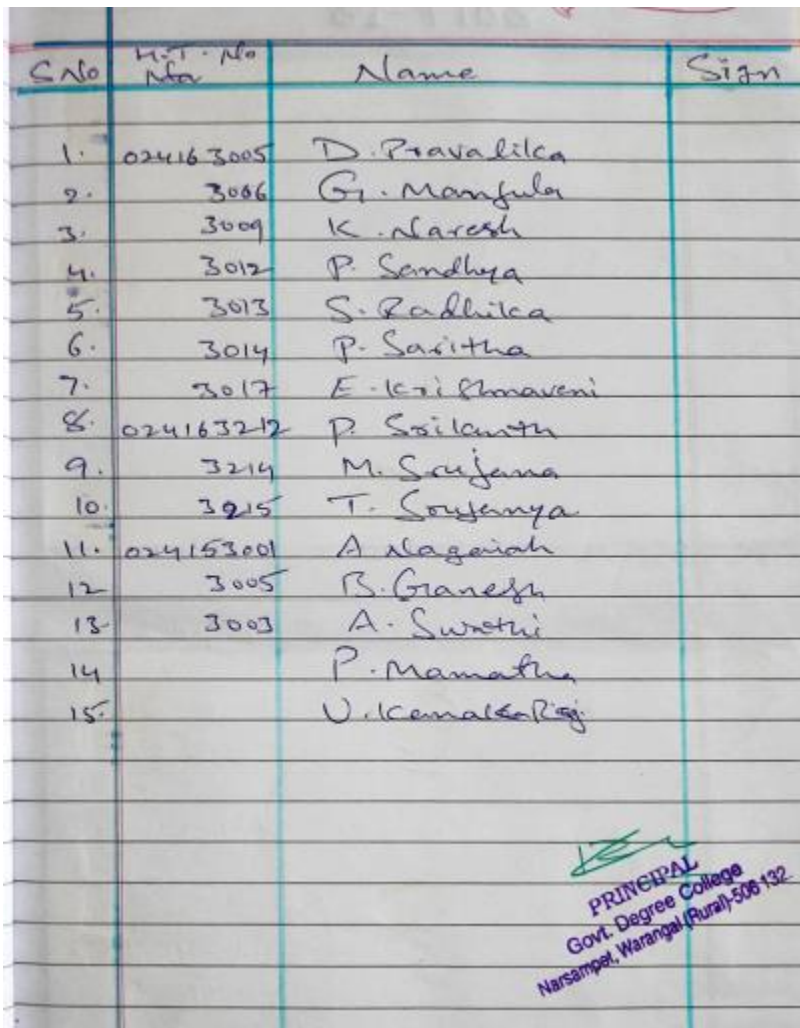 S No H.T. No Name Sign
1. 024163005 D. Pravalika
2. 3006 G. Manjula
3. 3009 K. Naresh
4. 3012 P. Sandhya
5. 3013 S. Radhika
6. 3014 P. Saritha
7. 3017 E. Krishnaveni
8. 024163212 P. Srikanth
9. 3214 M. Srujana
10. 3215 T. Soujanya
11. 024153001 A Nagaiah
12 3005 B. Ganesh
13 3003 A. Swathi
14 P. Mamatha
15. U. Kanaka
PRINCIPAL
Govt. Degree College
Narsampet, Warangal (Rural)-506 132